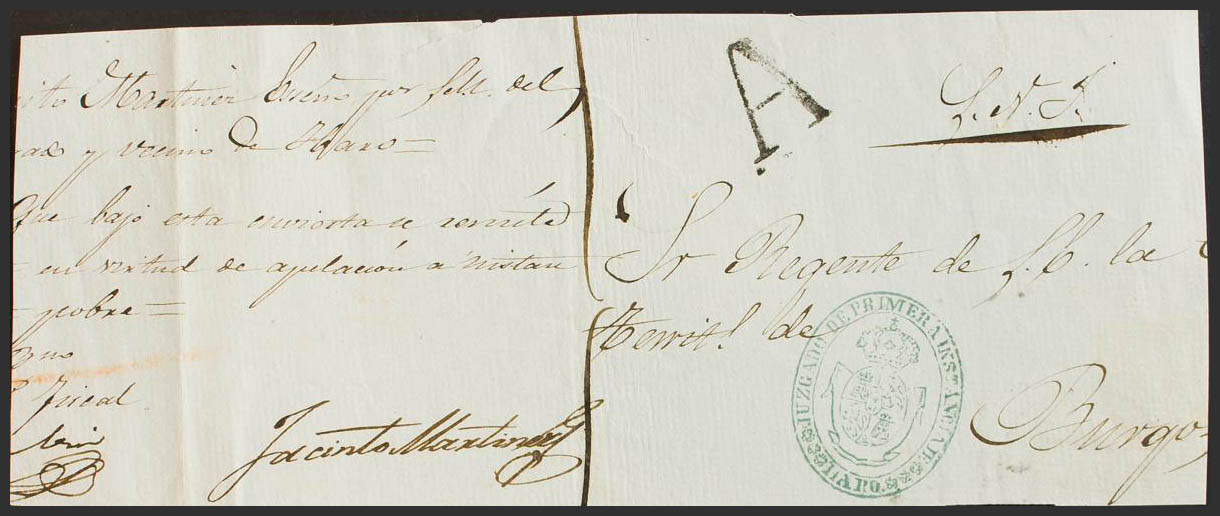 Martinez Essno por S.M. del
y vecino de Haro =
Que bajo esta cuvierta se remite
en virtud de apelación a instan
pobre =
Fiscal
Jacinto Martinez
A
S. N. J.
Sr Regente de S.E. la
Territl. de
Burgos
JUZGADO DE PRIMERA INSTANCIA DE HARO